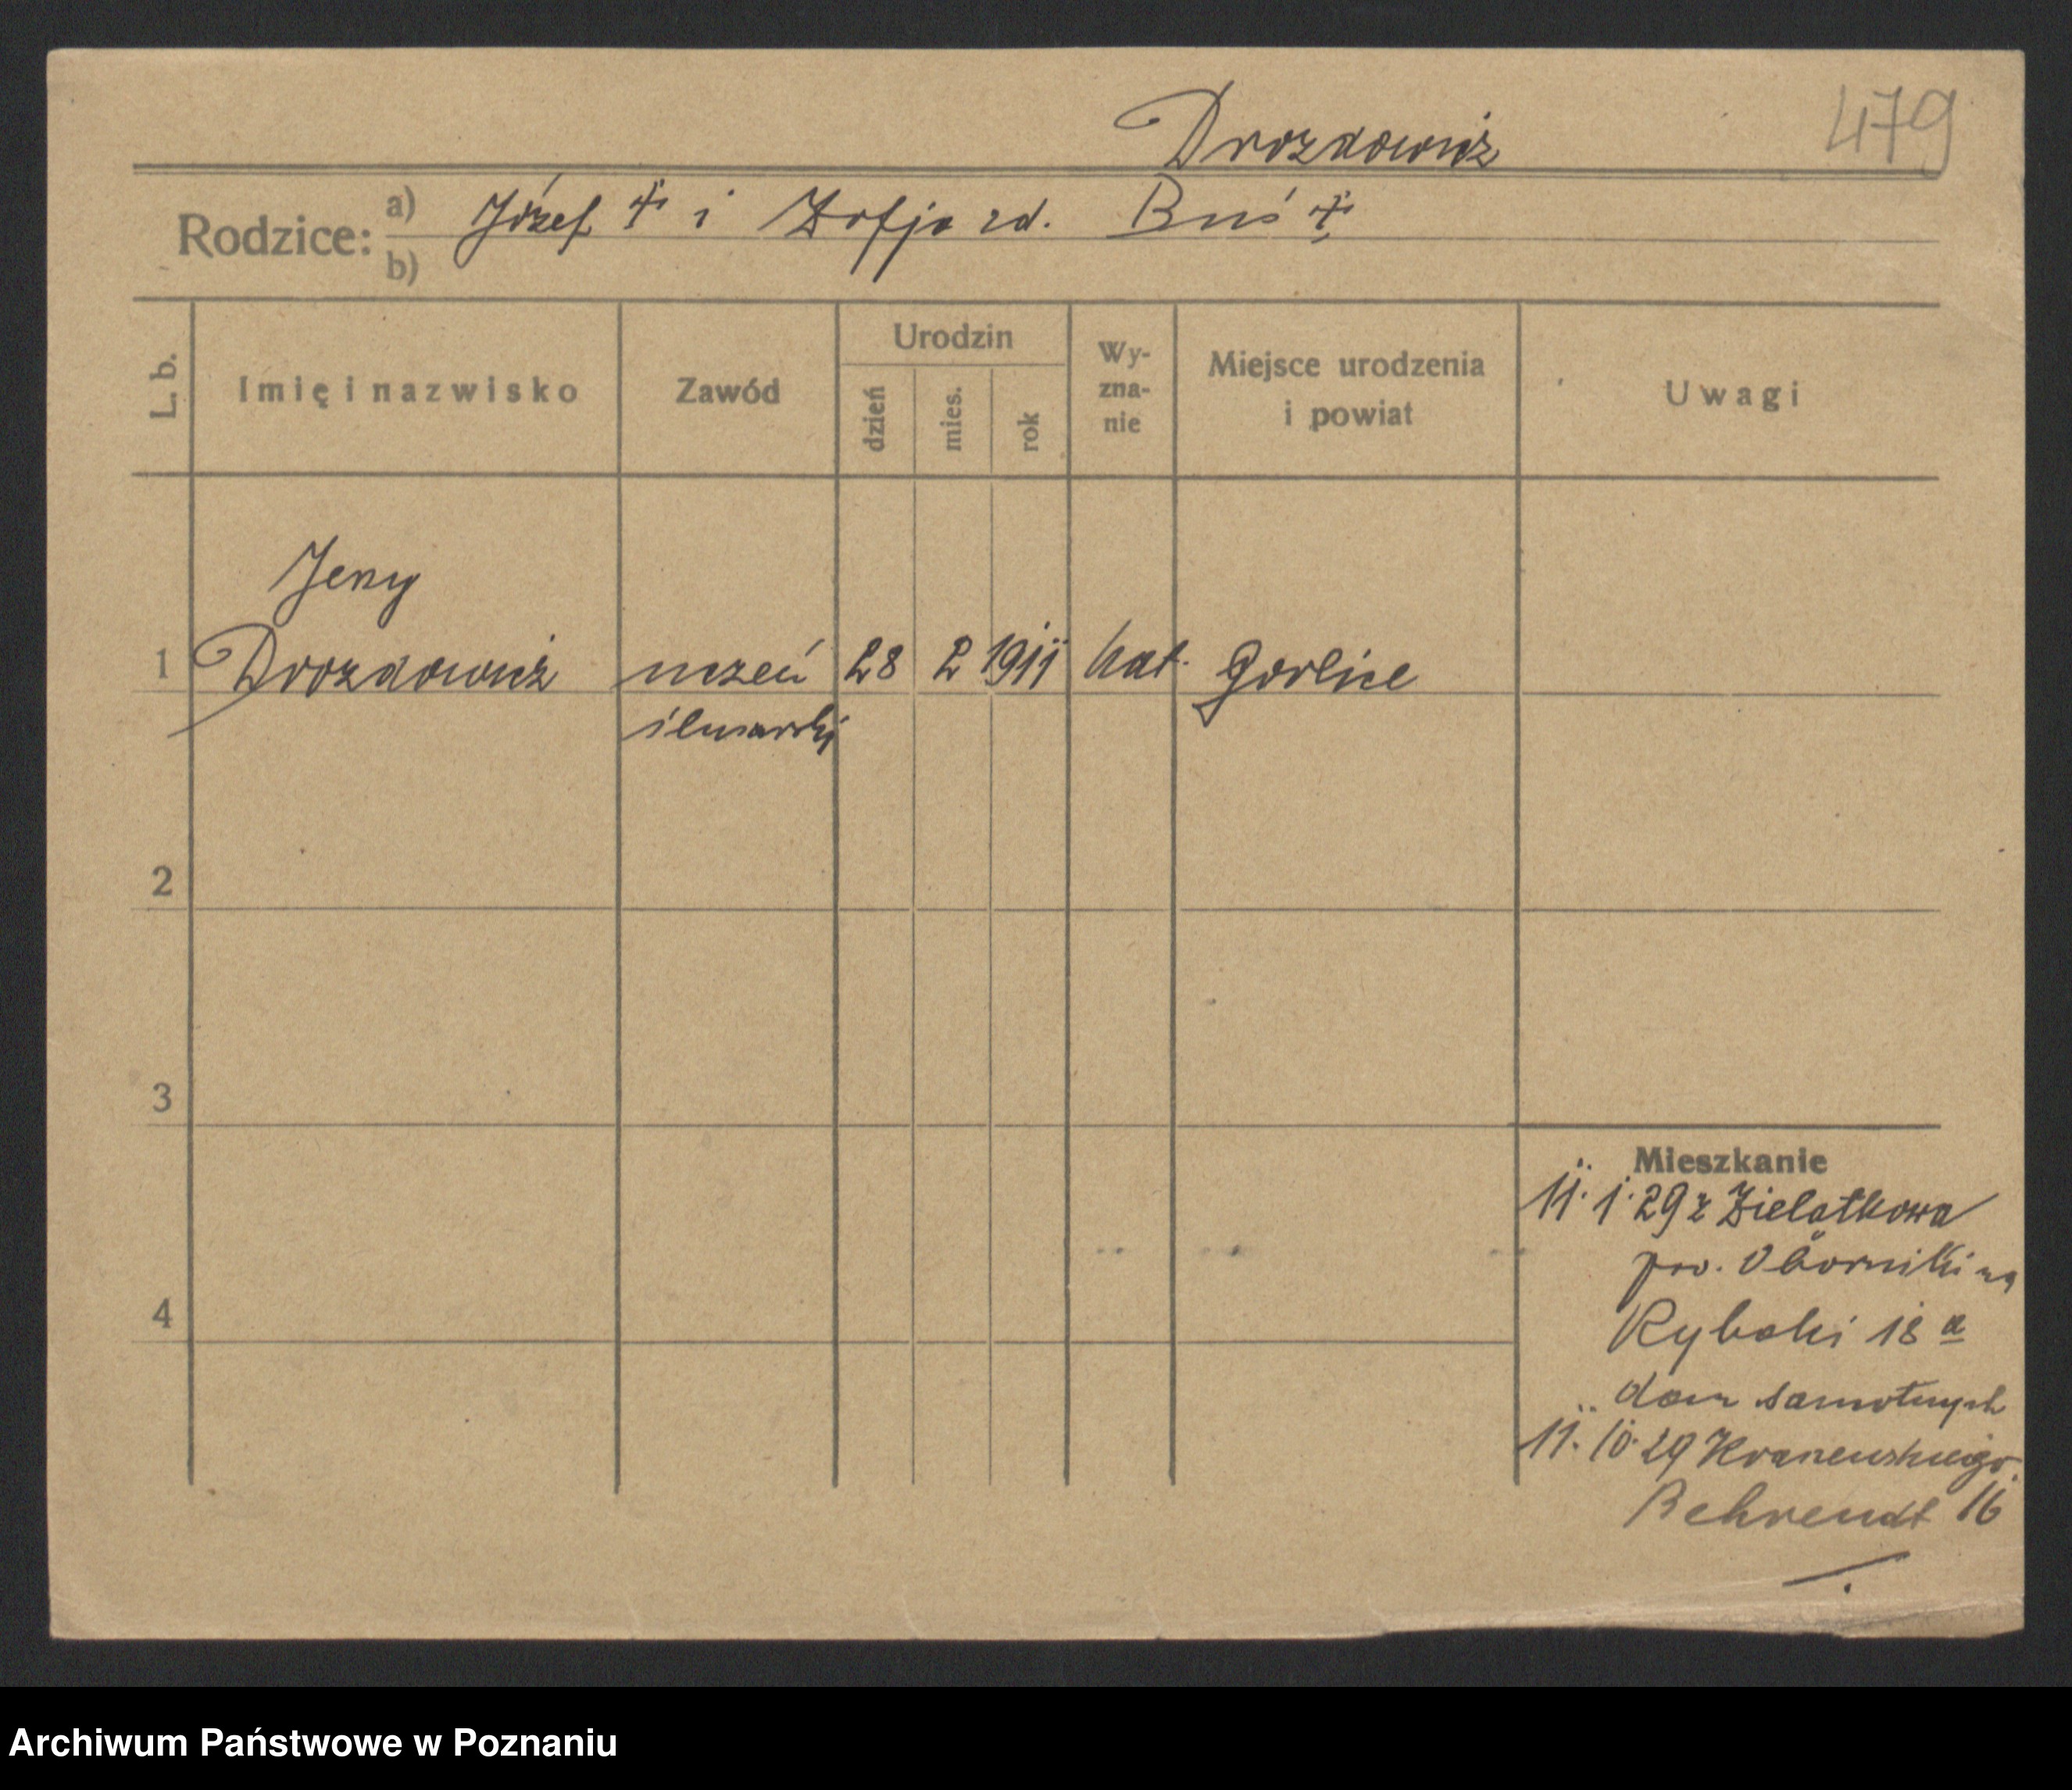 Drozdowicz 479
Rodzice: a) Józef ‡ i Zofja zd. Buś ‡
b)
L. b. Imię i nazwisko Zawód Urodzin dzień mies. rok Wy-zna-nie Miejsce urodzenia i powiat Uwagi
Jerzy
1 Drozdowicz uczeń 28 2 1911 kat. Gorlice
ślusarski
2
3
Mieszkanie
11. 1. 29 z Zielątkowa
pow. Oborniki na
4
Rybaki 18 a
dom samotnych
11. 10. 29 Kraszewskiego
Behrendt 16
Archiwum Państwowe w Poznaniu